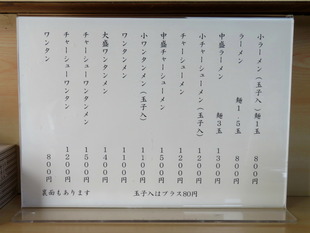 小ラーメン（玉子入）麺1玉 800円
ラーメン 麺1.5玉 800円
中盛ラーメン 麺3玉 1300円
小チャーシューメン（玉子入） 1200円
チャーシューメン 1200円
中盛チャーシューメン 1500円
小ワンタンメン（玉子入） 1100円
ワンタンメン 1100円
大盛ワンタンメン 1400円
チャーシューワンタンメン 1500円
チャーシューワンタン 1200円
ワンタン 800円
玉子入はプラス80円
裏面もあります